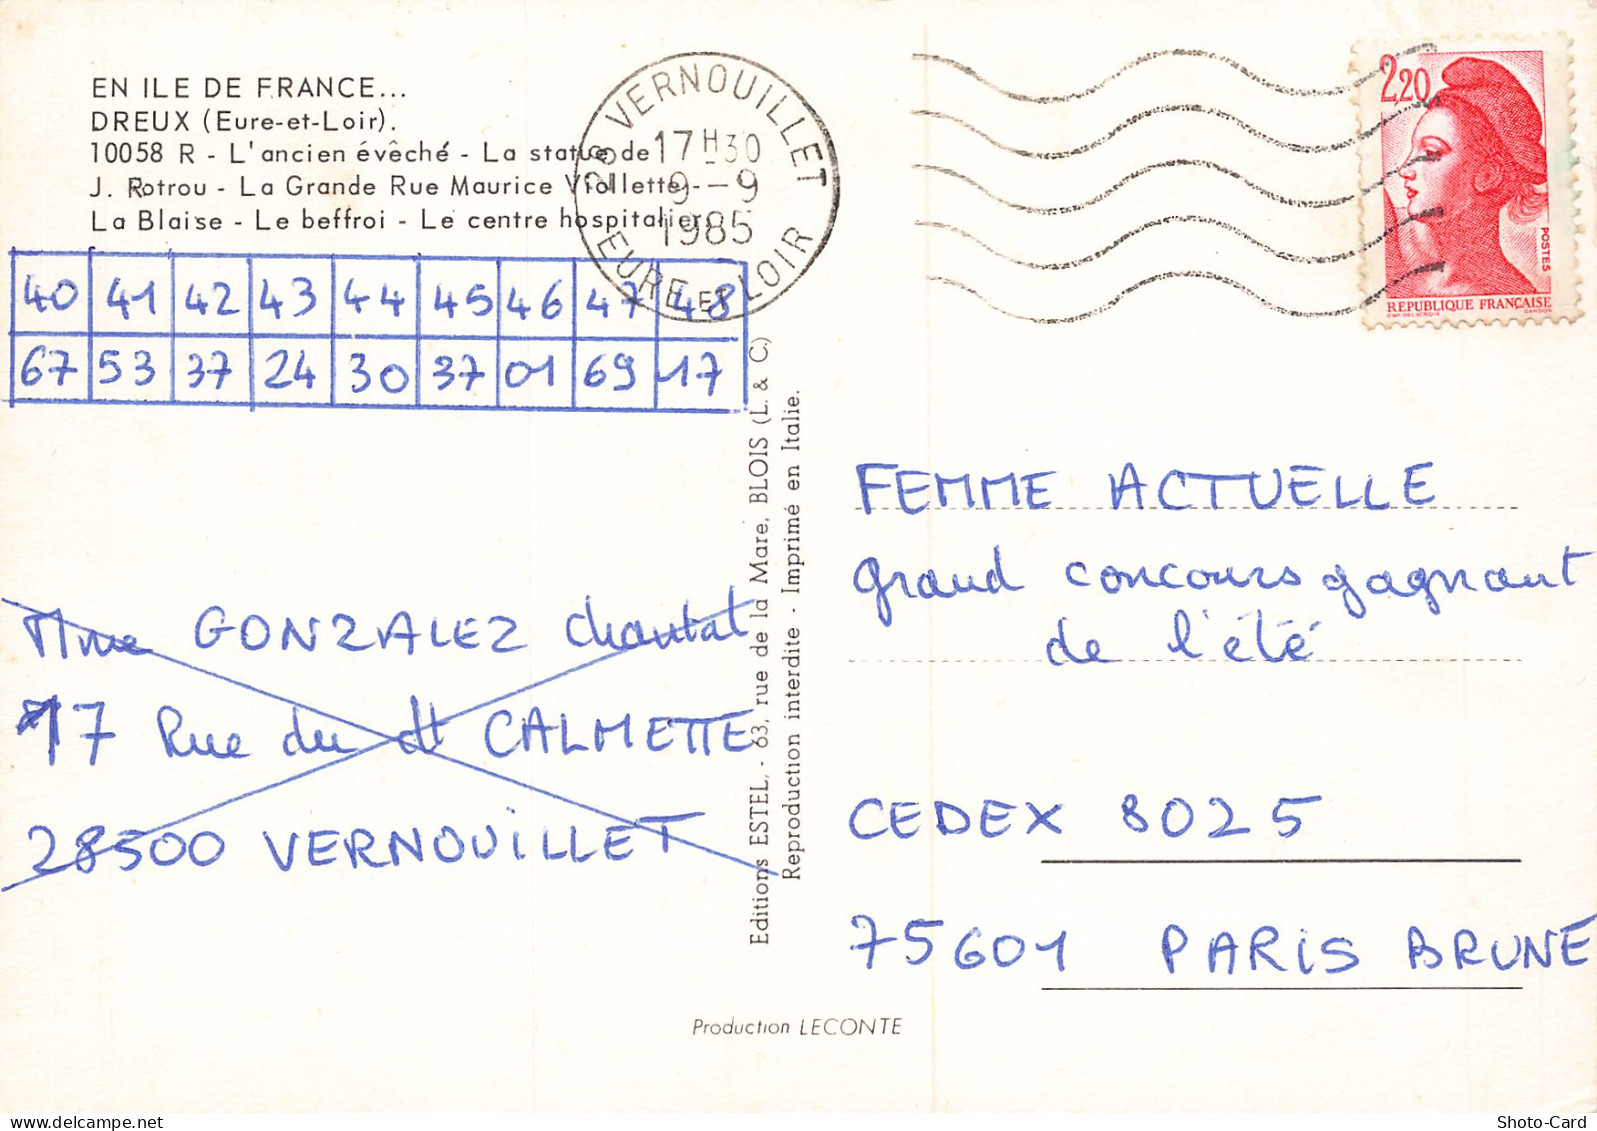 EN ILE DE FRANCE...
DREUX (Eure-et-Loir).
10058 R - L'ancien évêché - La statue de
J. Rotrou - La Grande Rue Maurice Viollette -
La Blaise - Le beffroi - Le centre hospitalier.
28 VERNOUILLET
17H30
9-9
1985
EURE ET LOIR
2,20
POSTES
REPUBLIQUE FRANÇAISE
D'AP. DELACROIX GANDON
40 41 42 43 44 45 46 47 48
67 53 37 24 30 37 01 69 17
Mme GONZALEZ Chantal
17 Rue du dt CALMETTE
28500 VERNOUILLET
Editions ESTEL, - 63, rue de la Mare, BLOIS (L. & C.)
Reproduction interdite - Imprimé en Italie.
FEMME ACTUELLE
grand concours gagnant
de l'été
CEDEX 8025
75601 PARIS BRUNE
Production LECONTE
Shoto-Card